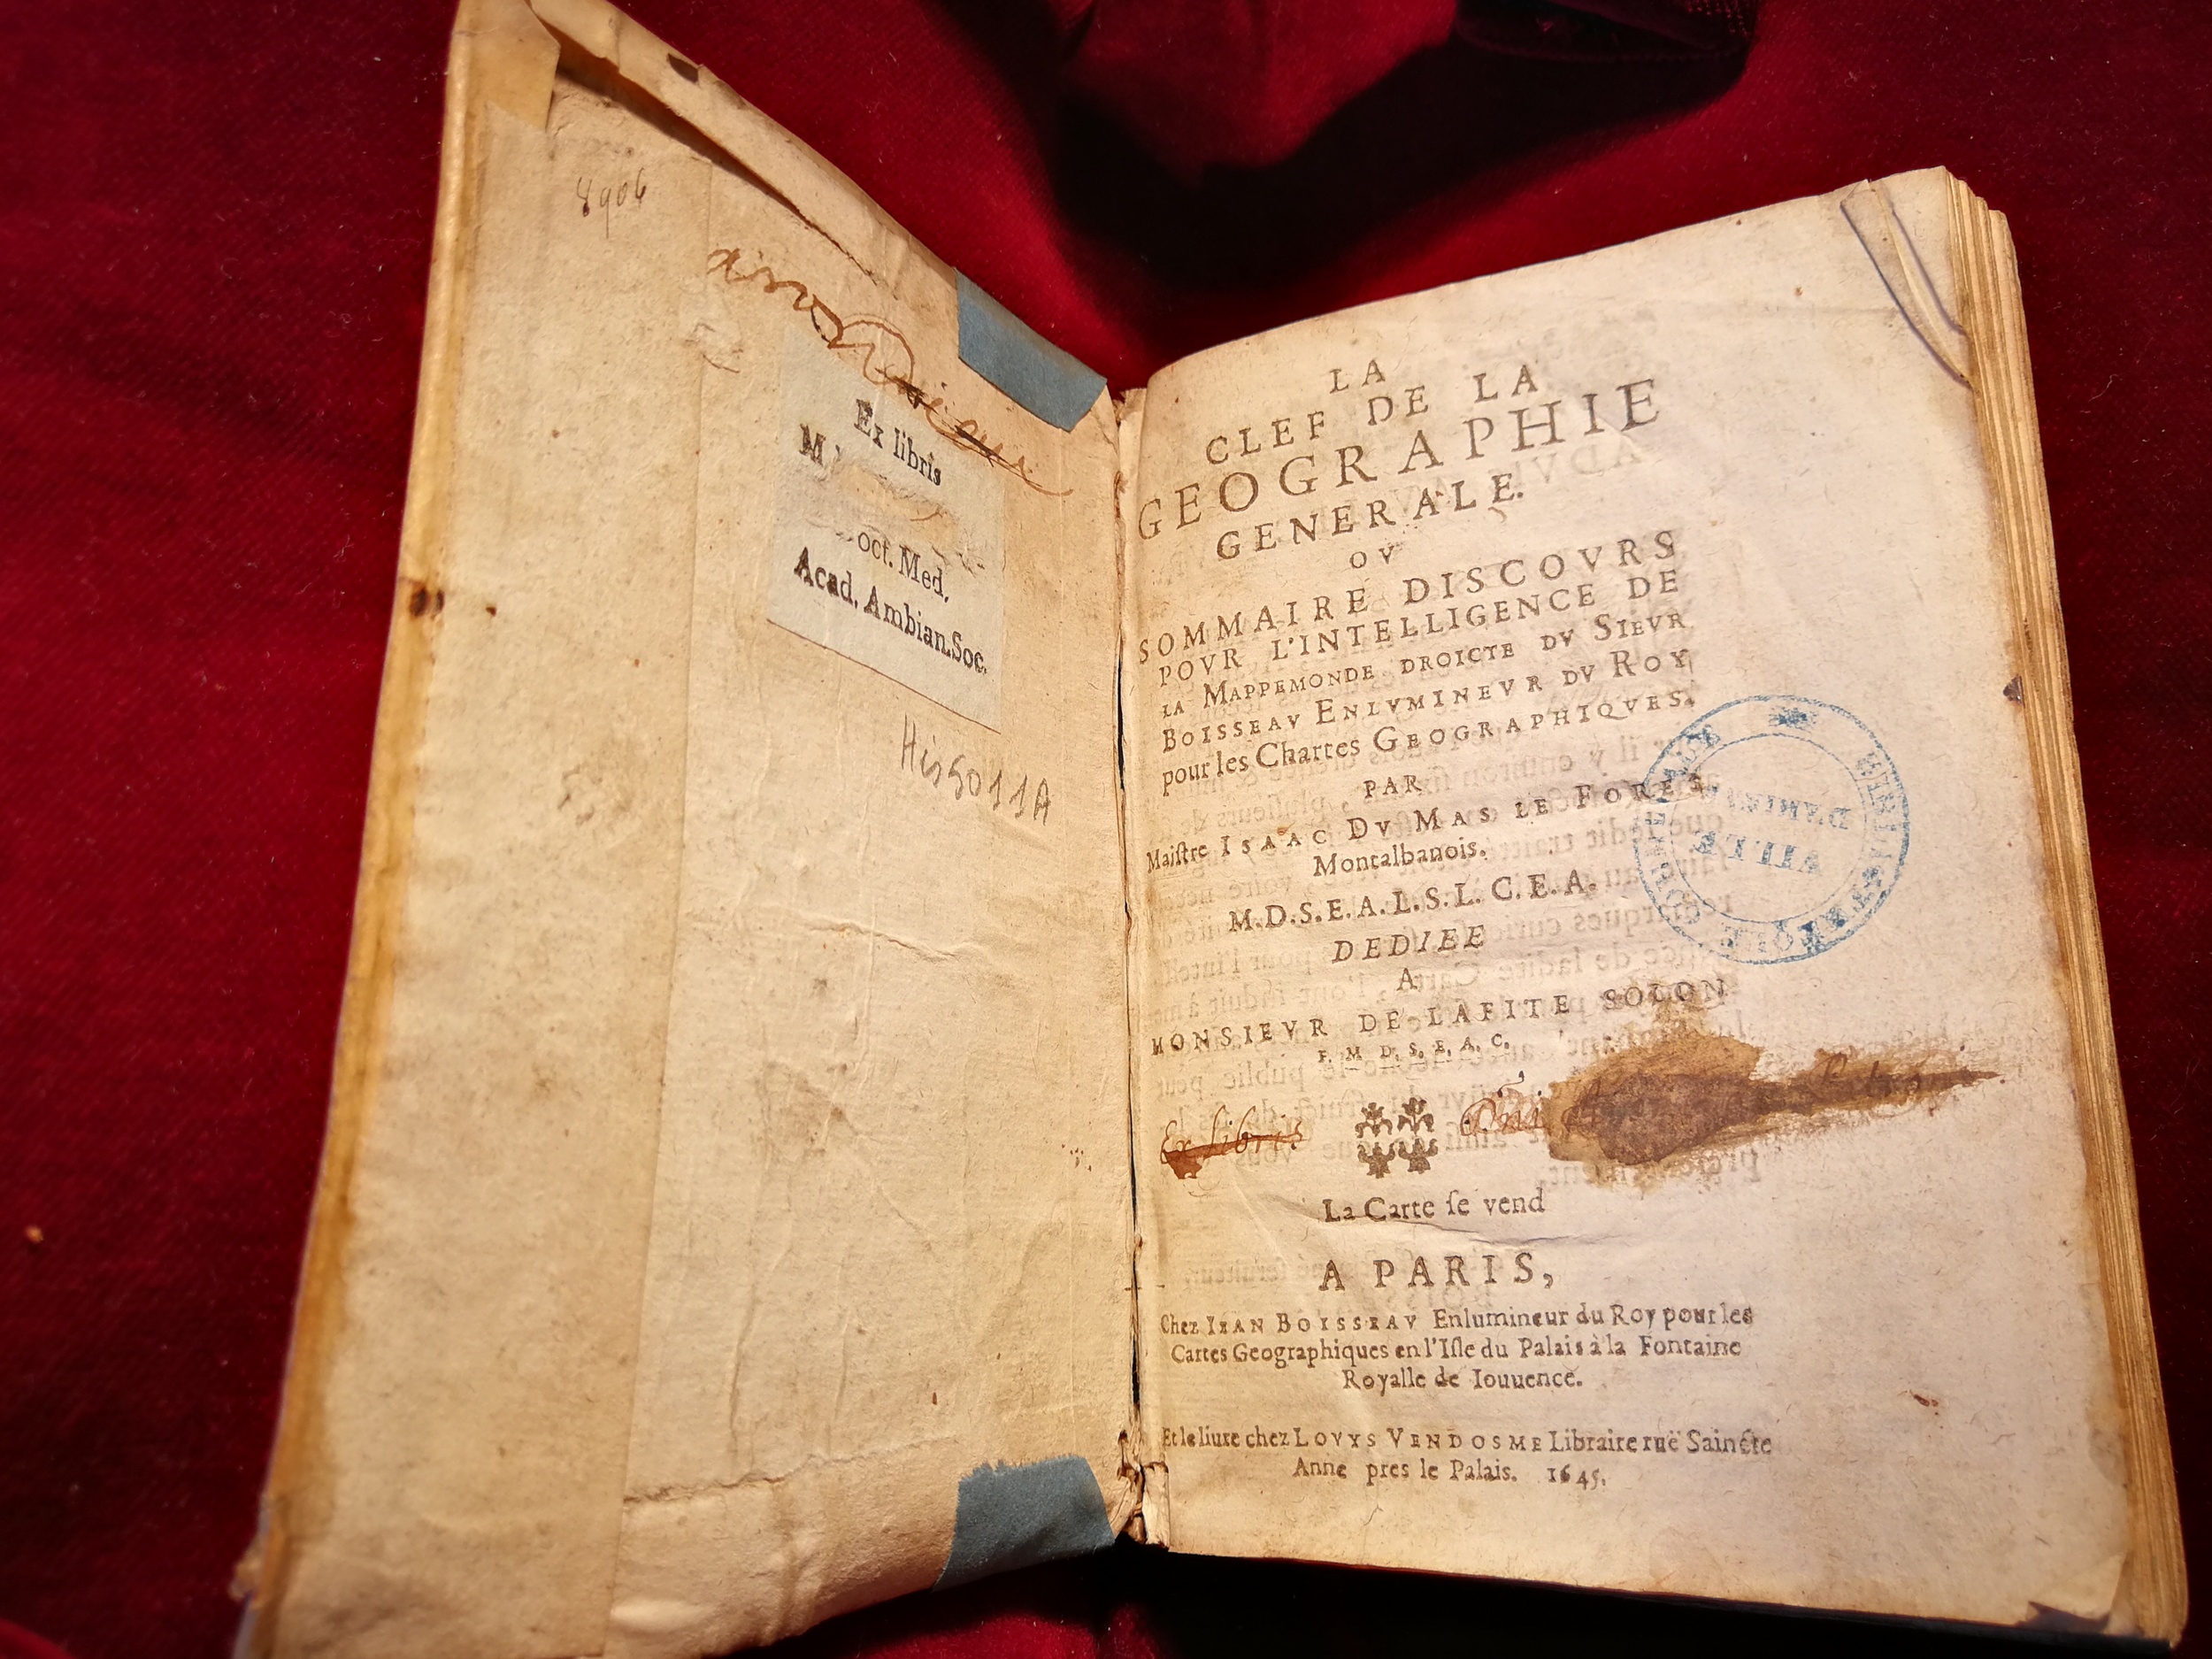 8906
Ex libris
M
oct. Med.
Acad. Ambian. Soc.
His 5011A
LA
CLEF DE LA
GEOGRAPHIE
GENERALE.
OV
SOMMAIRE DISCOVRS
POVR L'INTELLIGENCE DE
LA MAPPEMONDE DROICTE DV SIEVR
BOISSEAV ENLVMINEVR DV ROY
pour les Chartes GEOGRAPHIQVES.
PAR
Maiſtre ISAAC DV MAS LE FOREST
Montalbanois.
M.D.S.E.A.L.S.L.C.E.A.
DEDIEE
A
MONSIEVR DE LAFITE SOLON
F. M D. S. E. A. C.
Ex libris
La Carte ſe vend
A PARIS,
Chez IEAN BOISSEAV Enlumineur du Roy pour les
Cartes Geographiques en l'Iſle du Palais à la Fontaine
Royalle de Iouuence.
Et le liure chez LOVYS VENDOSME Libraire ruë Saincte
Anne pres le Palais. 1645.
BIBLIOTHEQUE COMMUNALE
VILLE
D'AMIENS